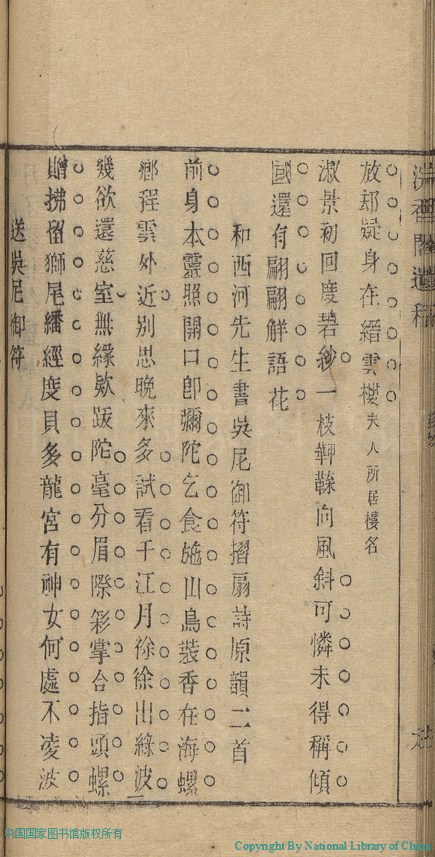 放却凝身在縉雲樓夫人所居樓名
淑景初回度碧紗一枝嚲鞣向風斜可憐未得稱傾
國還有翩翩解語花
和西河先生書吳尼御符摺扇詩原韻二首
前身本靈照開口卽彌陀乞食施山鳥裝香在海螺
鄉程雲外近別思晚來多試看千江月徐徐出綠波
幾欲還慈室無緣欵跋陀毫分眉際彩掌合指頭螺
贈拂留獅尾繙經度貝多龍宮有神女何處不凌波
送吳尼御符
中国国家图书馆版权所有
Copyright By National Library of China